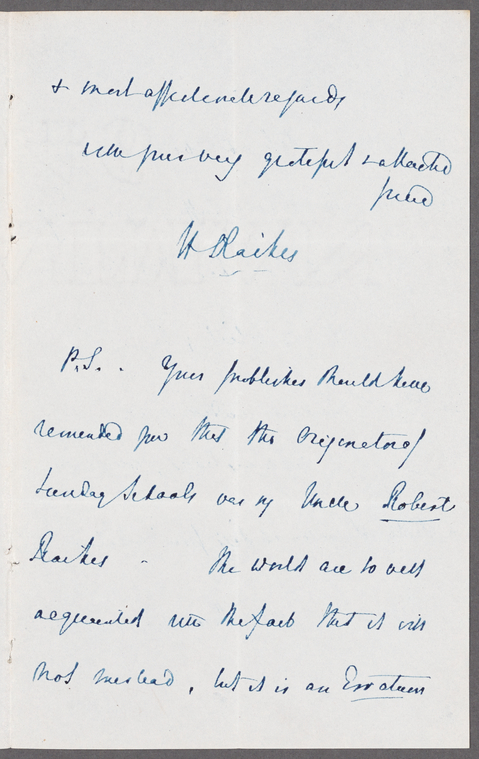 & most affectionate regards
your very grateful & attached
friend
H Raikes
P.S. . Your publisher should have
reminded you that the originator of
Sunday Schools was my Uncle Robert
Raikes - The world are so well
acquainted with the fact that it will
not mislead, but it is an Erratum